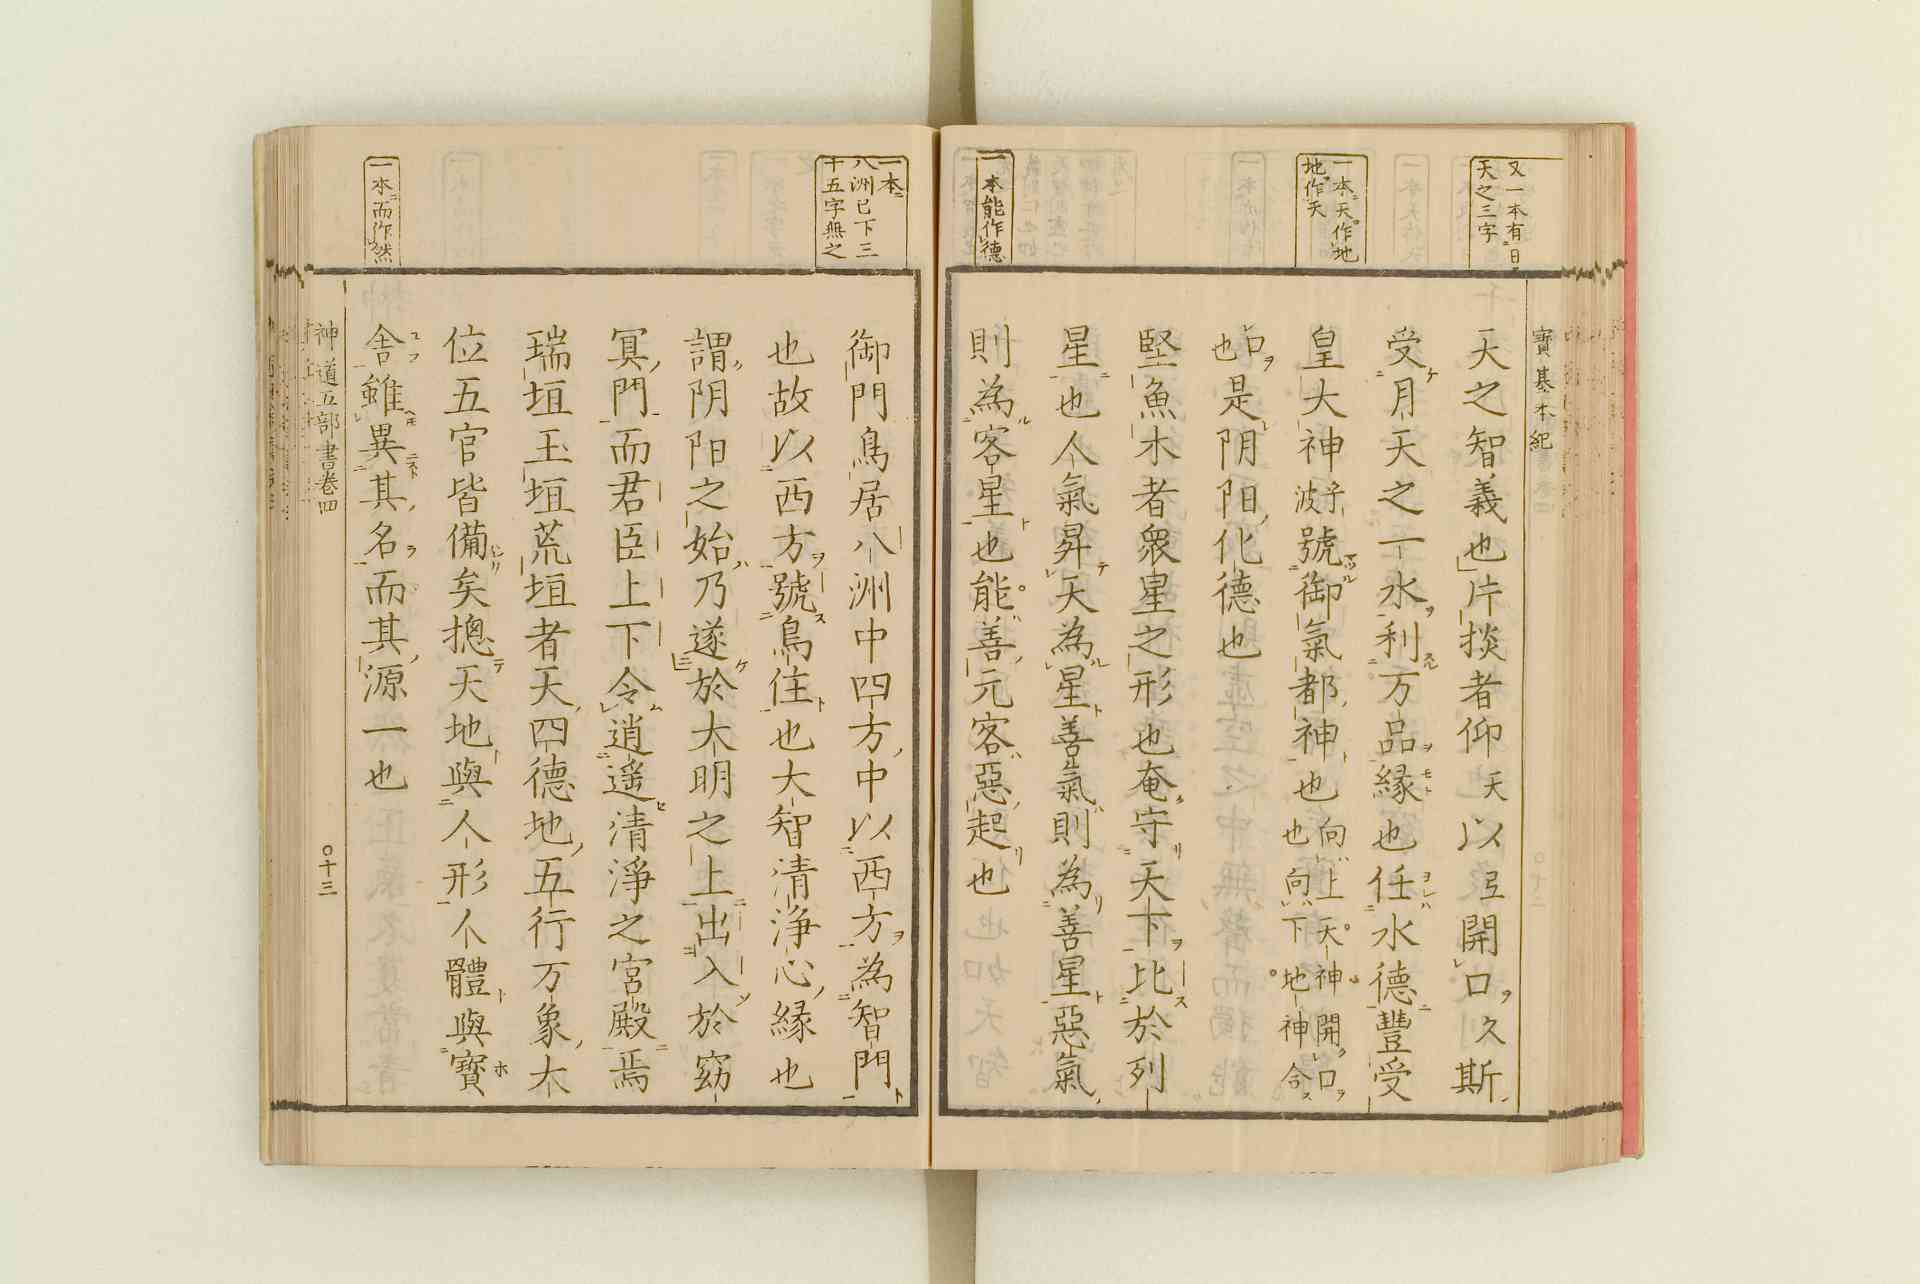 又一本有日
天之三字
一本ニ天作地
地作天
一本能作德
寶基本紀
天之智義也片掞者仰天以弖開口久斯
受月天之一水利万品緣也任水德豐受
皇大神予波號御氣都神也向上天神開口
也向下地神合
口也是阴阳化德也
堅魚木者衆星之形也奄守天下比於列
星也人氣昇天為星善氣則為善星惡氣
則為客星也能善元客惡起也
一本ニ
八洲已下三
十五字無之
一本ニ而作然
御門鳥居八洲中四方中以西方為智門
也故以西方號鳥住也大智清浄心緣也
謂阴阳之始乃遂於大明之上出入於窈
冥門而君臣上下令逍遙清淨之宮殿焉
瑞垣玉垣荒垣者天四德地五行万象大
位五官皆備矣摠天地與人形人體與寶
舎雖異其名而其源一也
神道五部書卷四
〇十三